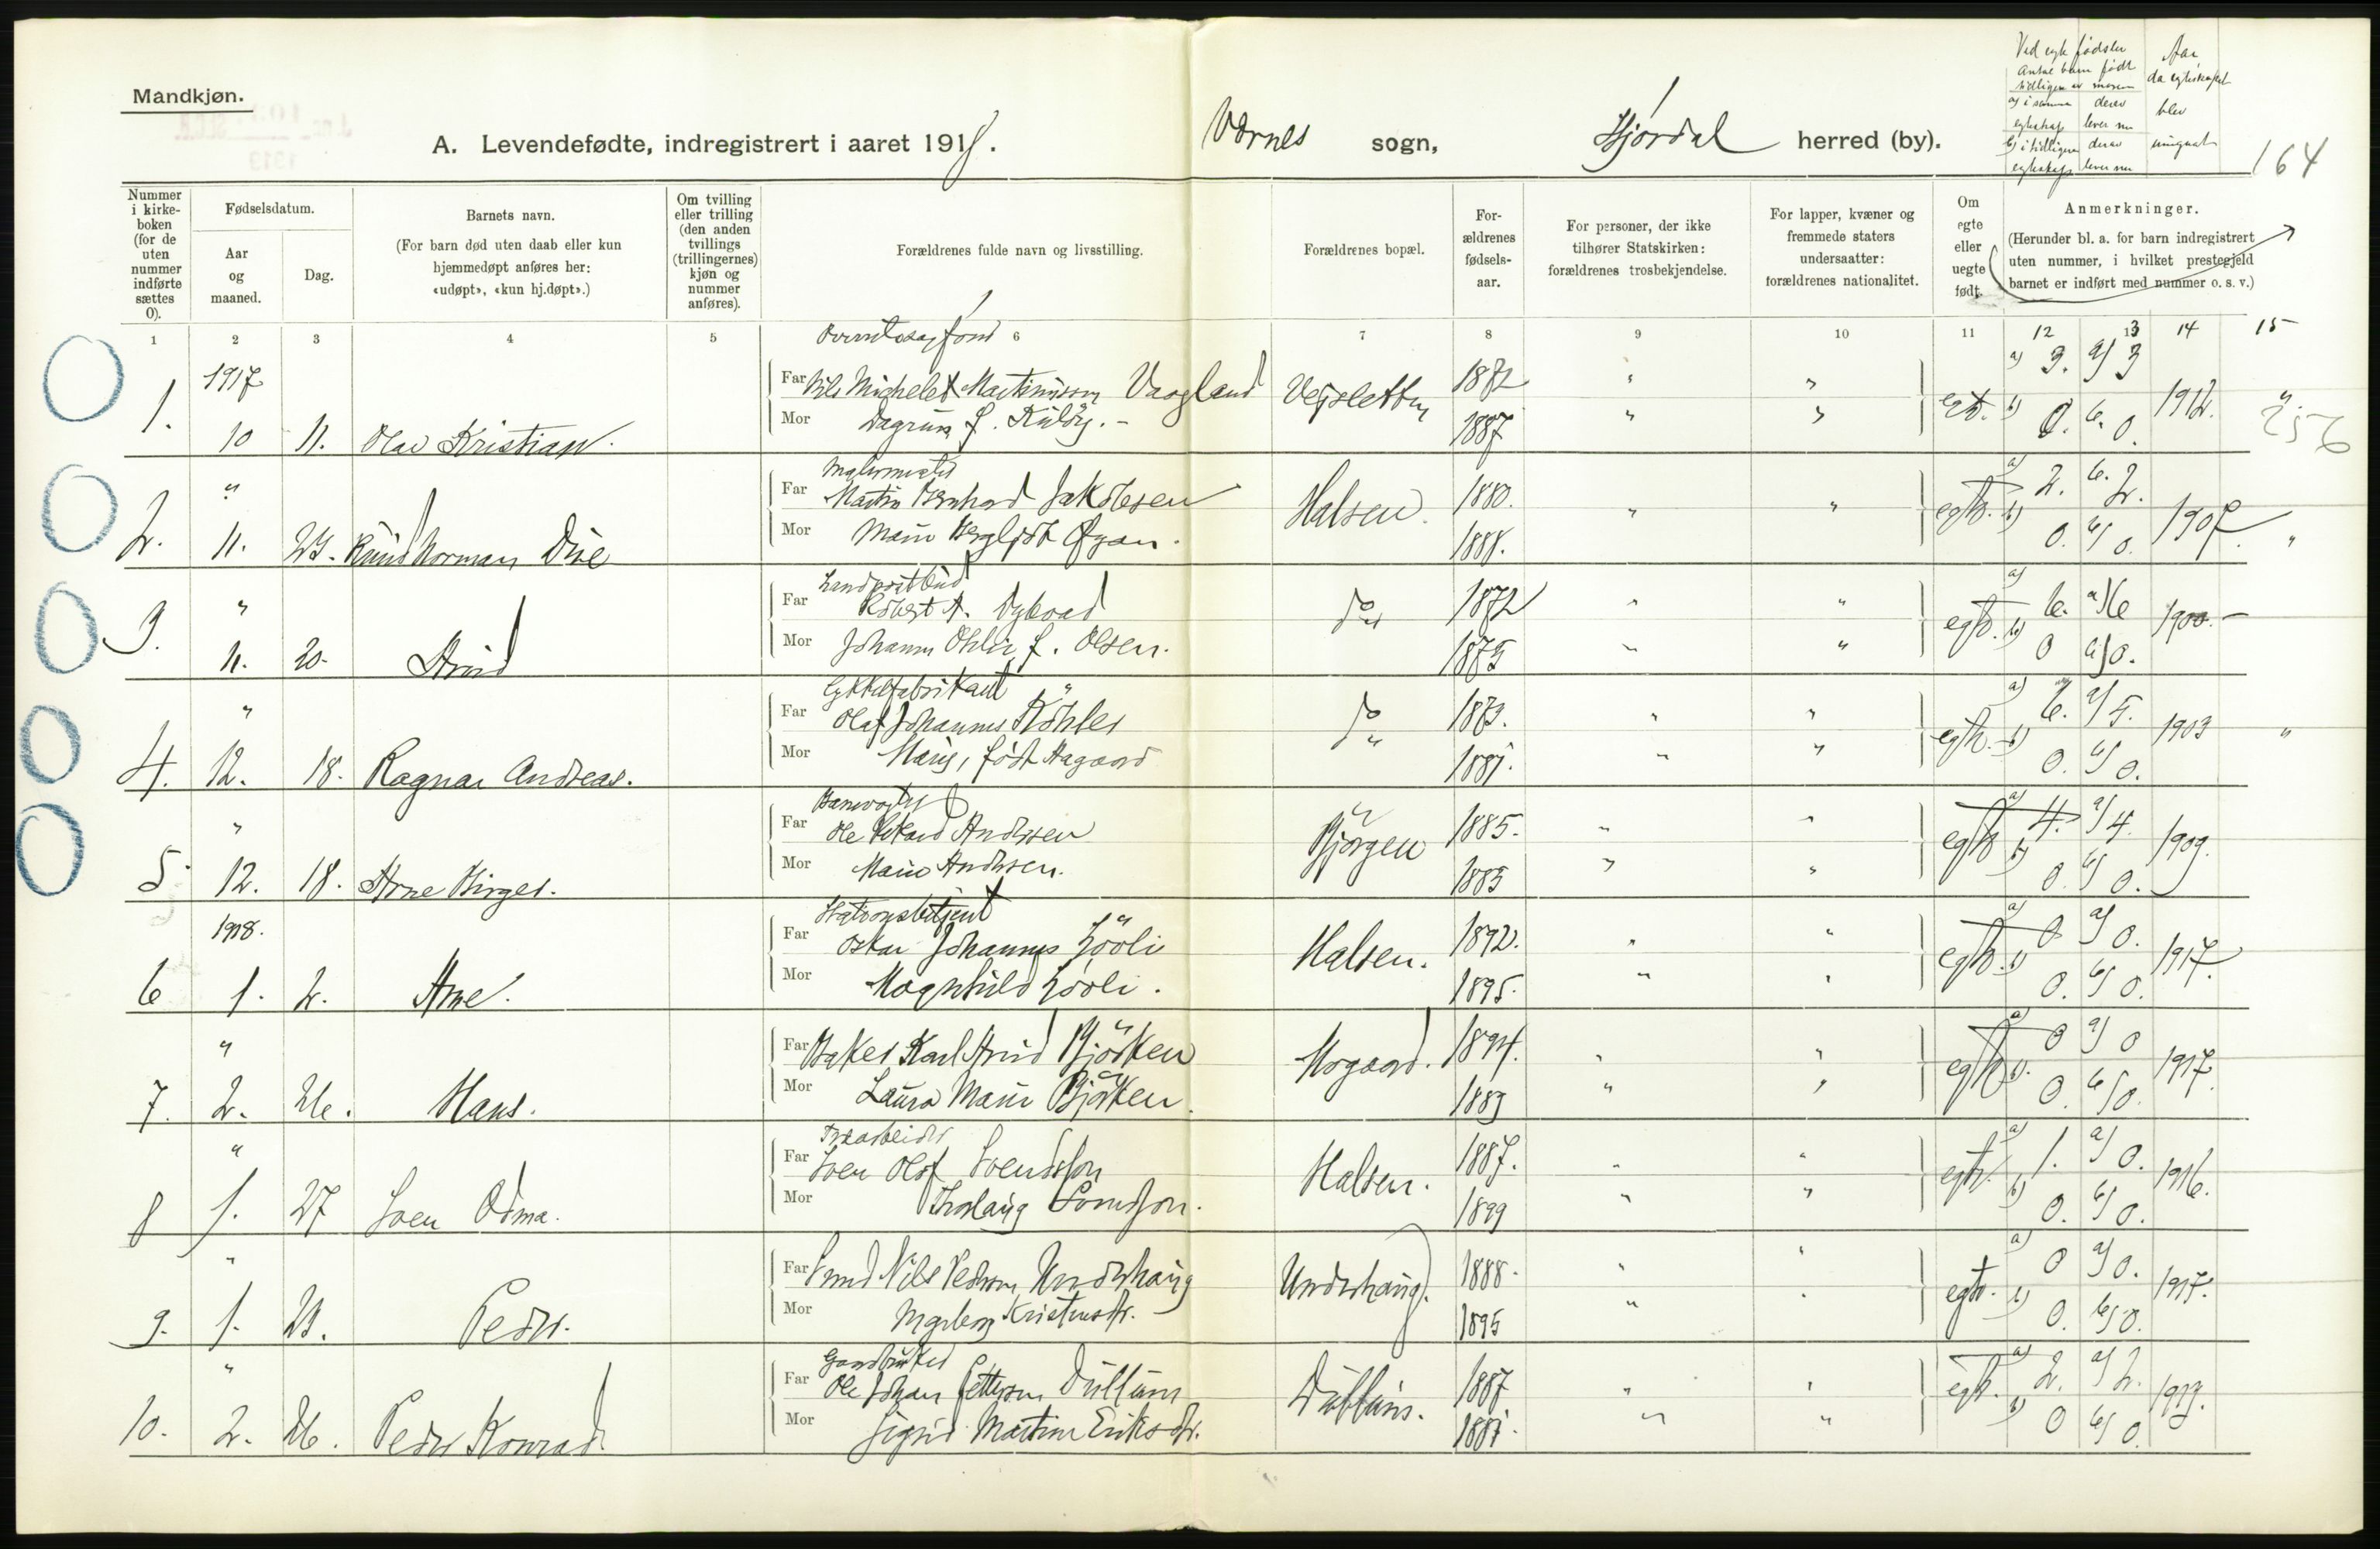 Mandkjøn.
A. Levendefødte, indregistrert i aaret 1918. Værnes sogn, Stjørdal herred (by). 164
Ved egte fødsler
Antal barn født
tidligere av moren
a) i samme egteskap
derav lever nu
b) i tidligere egteskap
derav lever nu
Aar da egteskapet blev indgaat
Nummer i kirkeboken (for de uten nummer indførte sættes 0).
Fødselsdatum.
Aar og maaned.
Dag.
Barnets navn.
(For barn død uten daab eller kun hjemmedøpt anføres her: «udøpt», «kun hj.døpt».)
Om tvilling eller trilling (den anden tvillings (trillingernes) kjøn og nummer anføres).
Forældrenes fulde navn og livsstilling.
Forældrenes bopæl.
Forældrenes fødselsaar.
For personer, der ikke tilhører Statskirken: forældrenes trosbekjendelse.
For lapper, kvæner og fremmede staters undersaatter: forældrenes nationalitet.
Om egte eller uegte født.
Anmerkninger.
(Herunder bl. a. for barn indregistrert uten nummer, i hvilket prestegjeld barnet er indført med nummer o. s. v.)
1 2 3 4 5 6 7 8 9 10 11 12 13 14 15
1917
Far Nils Michelet Martinussen Vaagland Vejsletten 1872 " " a) 3. a) 3
Mor Dagrun f. 1887 " " egt. b) 0. b. 0. 1912. "
1. 10 11. Olav Kristian. 256
Malermester
" Far Martin Bernhard Jakobsen Halsen. 1880. a) 2. 2.
Mor Marie Bergljot Øyan. 1888. " " egte. b) 0. b) 0. 1907. "
2. 11. 23. Knud Norman
Landpostbud
" Far Robert A. Dybvad do 1872 " " a) 6. a) 6
Mor Johanna f. Olsen. 1875 " " egte. b) 0 0. 1900. –
3. 11. 20. Arvid
" Far Olaf Johannes Köhler do 1873. " " a) 6. a) 5.
Mor Marie, født Aagaard 1881. " " egte. b) 0. b) 0. 1903 "
4. 12. 18. Ragnar Andreas.
Banevogter
" Far Ole Rikard Andersen Bjørgen 1885. " " a) 4. a) 4.
Mor Marie Andersen. 1883 " " egte b) 0. b) 0. 1909.
5. 12. 18. Arne Birger.
Stationsbetjent
1918. Far Oskar Johannes Lövli Halsen. 1892. " " a) 0 a) 0.
Mor Magnhild Lövli. 1895. " " egte. b) 0. b) 0. 1917.
6 1. 2. Arne.
" Far Baker Karl Arvid Björken Mogaard. 1894. " " a) 0 a) 0
Mor Laura Marie Björken. 1883 " " egte b) 0. b) 0. 1917.
7. 2. 26. Hans.
Træarbeider
" Far Sven Olof Svendsson Halsen. 1887. " " a) 1. a) 0.
Mor Svendsson. 1899 " " egte. b) 0. b) 0. 1916.
8 1. 27 Sven
" Far Nils Pedersen Undershaug Undershaug. 1888. " " a) 0 a) 0.
Mor Ingeborg Kristensdtr. 1895 " " egte. b) 0. b) 0. 1917.
9. 1. 23. Peder.
Gaardbruker
" Far Ole Johan Pettersen Dullum Dullum. 1887. " " a) 2. a) 2.
Mor Sigrid Martine Eriksdtr. 1881. " " egte. b) 0 b) 0.
10. 2. 26. Peder Konrad